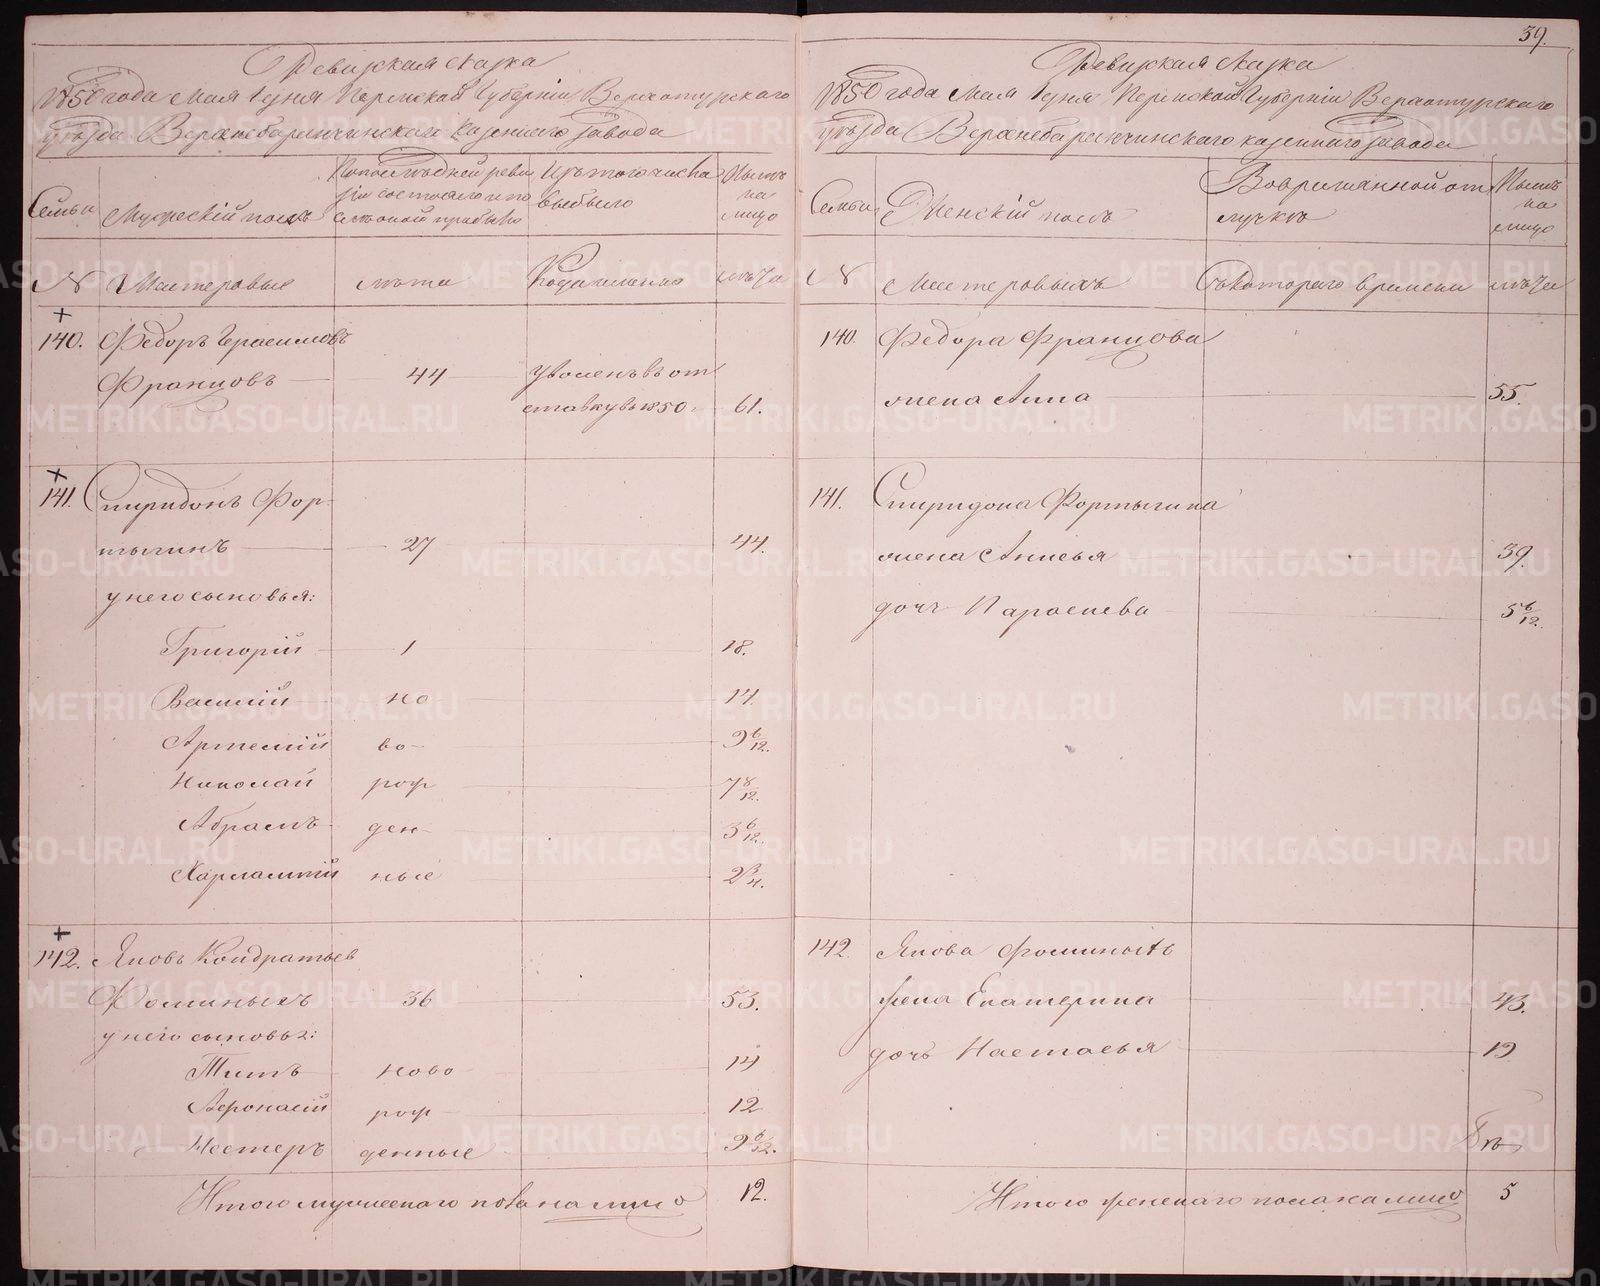 39.
Ревизская сказка
1850 года Мая 1 дня Пермской Губерніи Верхотурскаго
уѣзда Верхнебаранчинскаго казеннаго завода
Семьи
Мужескій полъ
По послѣдней реви
зіи состояло и по
слѣ оной прибыло
Изъ того числа
выбыло
Нынѣ
на
лицо
№
Мастеровые
лѣта
Когда именно
лѣта
140.
Федоръ Герасимовъ
Францовъ
44
Уволенъ въ от
ставку въ 1850.
61.
141.
Спиридонъ Фор-
тыгинъ
27
44.
у него сыновья:
Григорій
1
18.
Василій
но
14.
Артемій
во-
9 6/12.
Николай
рож
7 8/12.
Абрамъ
ден-
3 6/12.
Харлампій
ные
2 3/4.
142.
Яковъ Кондратьев
Фоминыхъ
36
53.
у него сыновья:
Титъ
ново
14
Афонасій
рож
12
Нестеръ
денные
9 6/12.
Итого мужескаго пола на лицо
12.
Ревизская сказка
1850 года Мая 1 дня Пермской Губерніи Верхотурскаго
уѣзда Верхнебаранчинскаго казеннаго завода
Семьи
Женскій полъ
Во временной от
лучкѣ
Нынѣ
на
лицо
№
Мастеровыхъ
Съ котораго времени
лѣта
140.
Федора Францова
жена Анна
55.
141.
Спиридона Фортыгина
жена Анисья
39.
дочь Парасковья
5 6/12.
142.
Якова Фоминыхъ
жена Екатерина
43.
дочь Настасья
19
Итого женскаго пола на лицо
5
METRIKI.GASO-URAL.RU